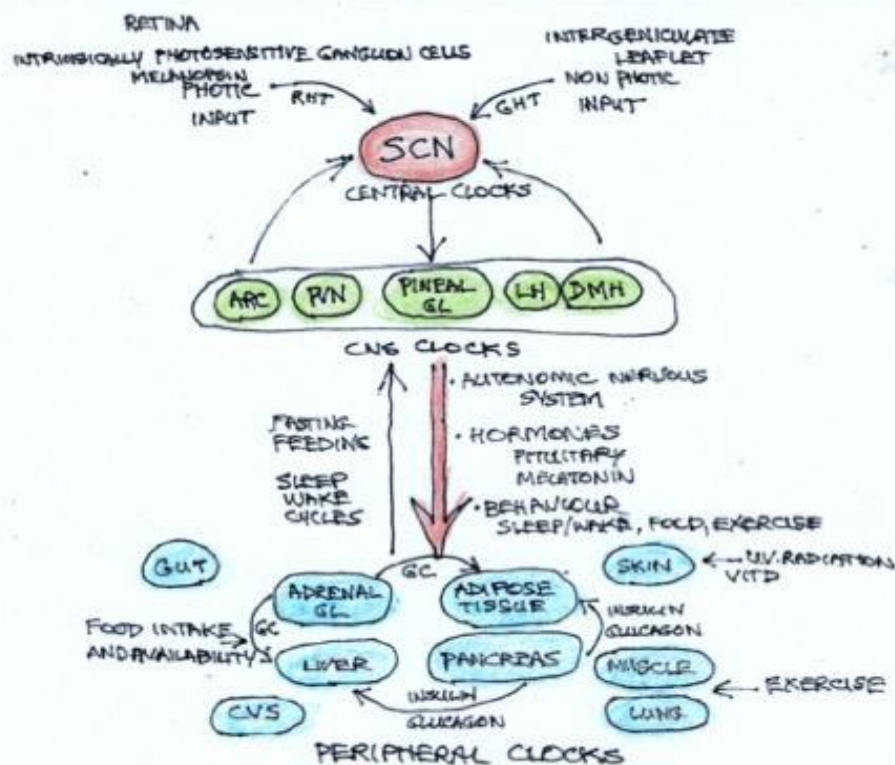 RETINA
INTRINSICALLY PHOTOSENSITIVE GANGLION CELLS
MELANOPSIN
PHOTIC
INPUT
RHT
INTERGENICULATE
LEAFLET
NON PHOTIC
INPUT
GHT
SCN
CENTRAL CLOCKS
ARC
PVN
PINEAL
GL
LH
DMH
CNS CLOCKS
FASTING
FEEDING
SLEEP
WAKE
CYCLES
• AUTONOMIC NERVOUS
SYSTEM
• HORMONES
PITUITARY
MELATONIN
• BEHAVIOUR
SLEEP/WAKE, FOOD, EXERCISE
GUT
ADRENAL
GL
GC
ADIPOSE
TISSUE
SKIN
U.V. RADIATION
VIT D
FOOD INTAKE
AND AVAILABILITY
GC
LIVER
PANCREAS
INSULIN
GLUCAGON
MUSCLE
EXERCISE
CVS
INSULIN
GLUCAGON
LUNG
PERIPHERAL CLOCKS